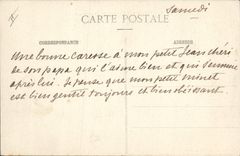 Samedi
CARTE POSTALE
CORRESPONDANCE
ADRESSE
Une bonne caresse à mon petit Jean chéri
de son papa qui l'aime bien et qui s'ennuie
après lui. Je pense que mon petit minet
est bien gentil toujours et bien obéissant.